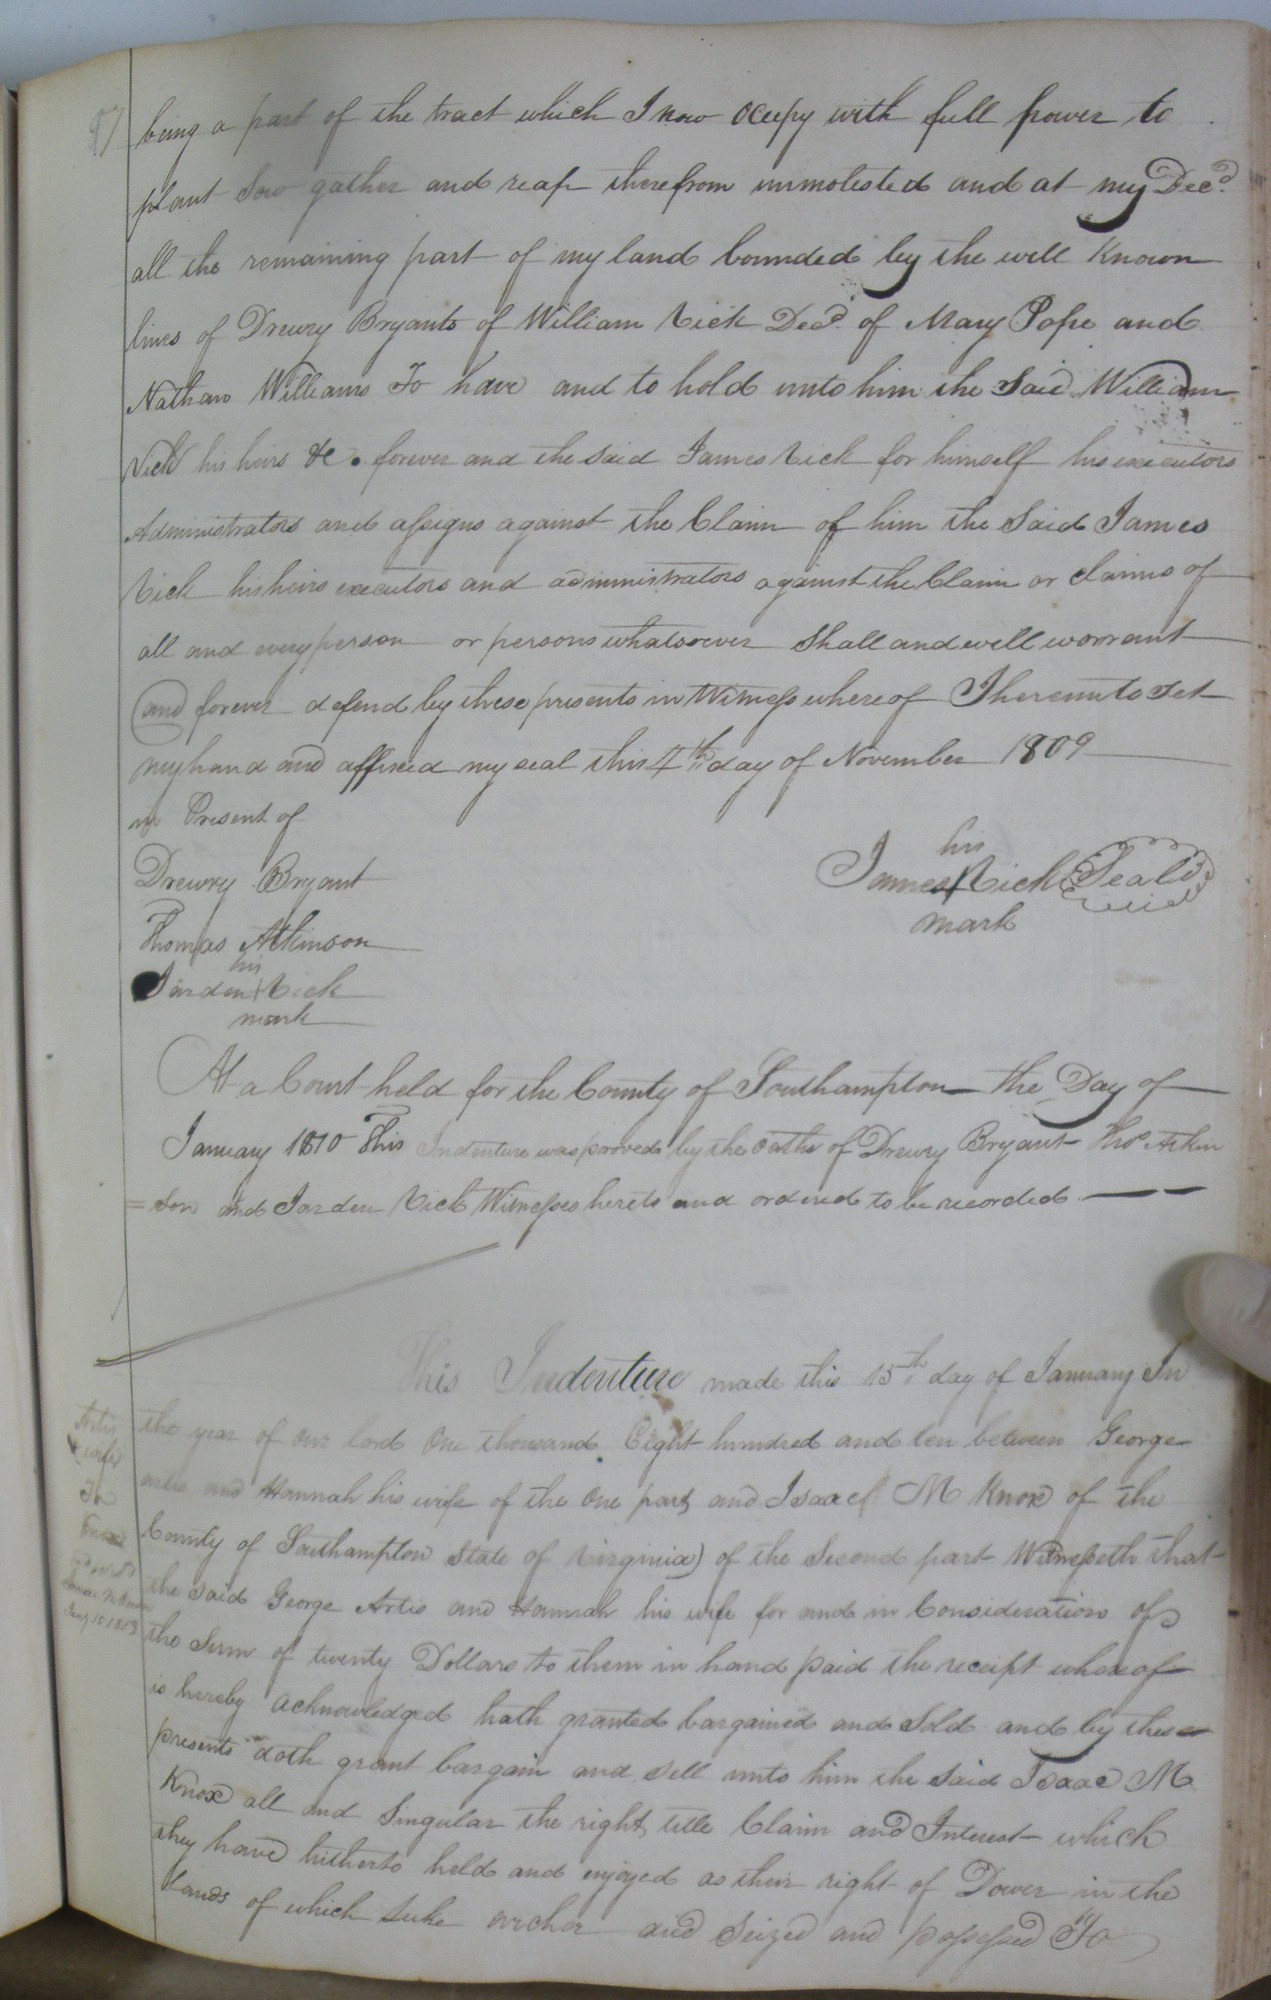 being a part of the tract which I now occupy with full power to
plant sow gather and reap therefrom unmolested and at my Decd.
all the remaining part of my land bounded by the well Known
lines of Drewry Bryants of William Vick Decd. of Mary Pope and
Nathan Williams To have and to hold unto him the Said William
Vick his heirs &c. forever and the said James Vick for himself his executors
Administrators and assigns against the Claim of him the Said James
Vick his heirs executors and administrators against the Claim or claims of
all and every person or persons whatsoever Shall and will warrant
and forever defend by these presents in Witness whereof I hereunto set
my hand and affixed my seal this 4th day of November 1809
in Present of
Drewry Bryant
his
James Vick Seal
mark
Thomas Atkinson
his
Jarden + Vick
mark
At a Court held for the County of Southampton the Day of
January 1810 This Indenture was proved by the oaths of Drewry Bryant Thos Atkin
=son and Jarden Vick Witnesses hereto and ordered to be recorded
This Indenture made this 15th day of January In
the year of our lord One thousand Eight hundred and ten between George
artis and Hannah his wife of the one part and Isaac M Knox of the
County of Southampton State of Virginia) of the Second part Witnesseth that
the said George Artis and Hannah his wife for and in Consideration of
the Sum of twenty Dollars to them in hand paid the receipt whereof
is hereby acknowledged hath granted bargained and Sold and by these
presents doth grant bargain and sell unto him the said Isaac M
Knox all and Singular the right title Claim and Interest which
they have hitherto held and enjoyed as their right of Dower in the
Lands of which Luke archer died Seized and possessed To
Artis
& wife
To
Knox